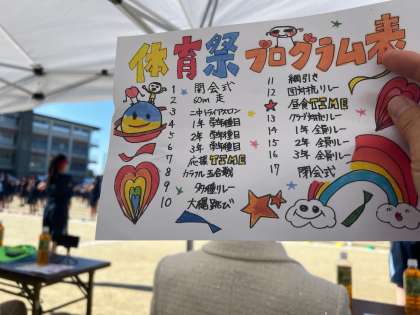 体育祭 プログラム表
1 開会式
2 60m 走
3 二中トライアスロン
4 1年 学年種目
5 2年 学年種目
6 3年 学年種目
7 応援TIME
8 カラフル玉合戦
9 多種リレー
10 大縄跳び
11 綱引き
12 団対抗リレー
13 昼食TIME
14 1年 全員リレー
15 2年 全員リレー
16 3年 全員リレー
17 閉会式